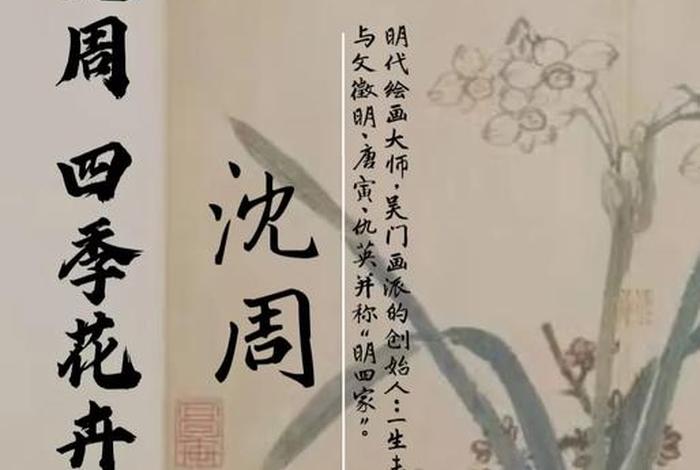 明代绘画大师，吴门画派的创始人：一生
与文徵明、唐寅、仇英并称“明四家”。
沈周
周 四季花卉